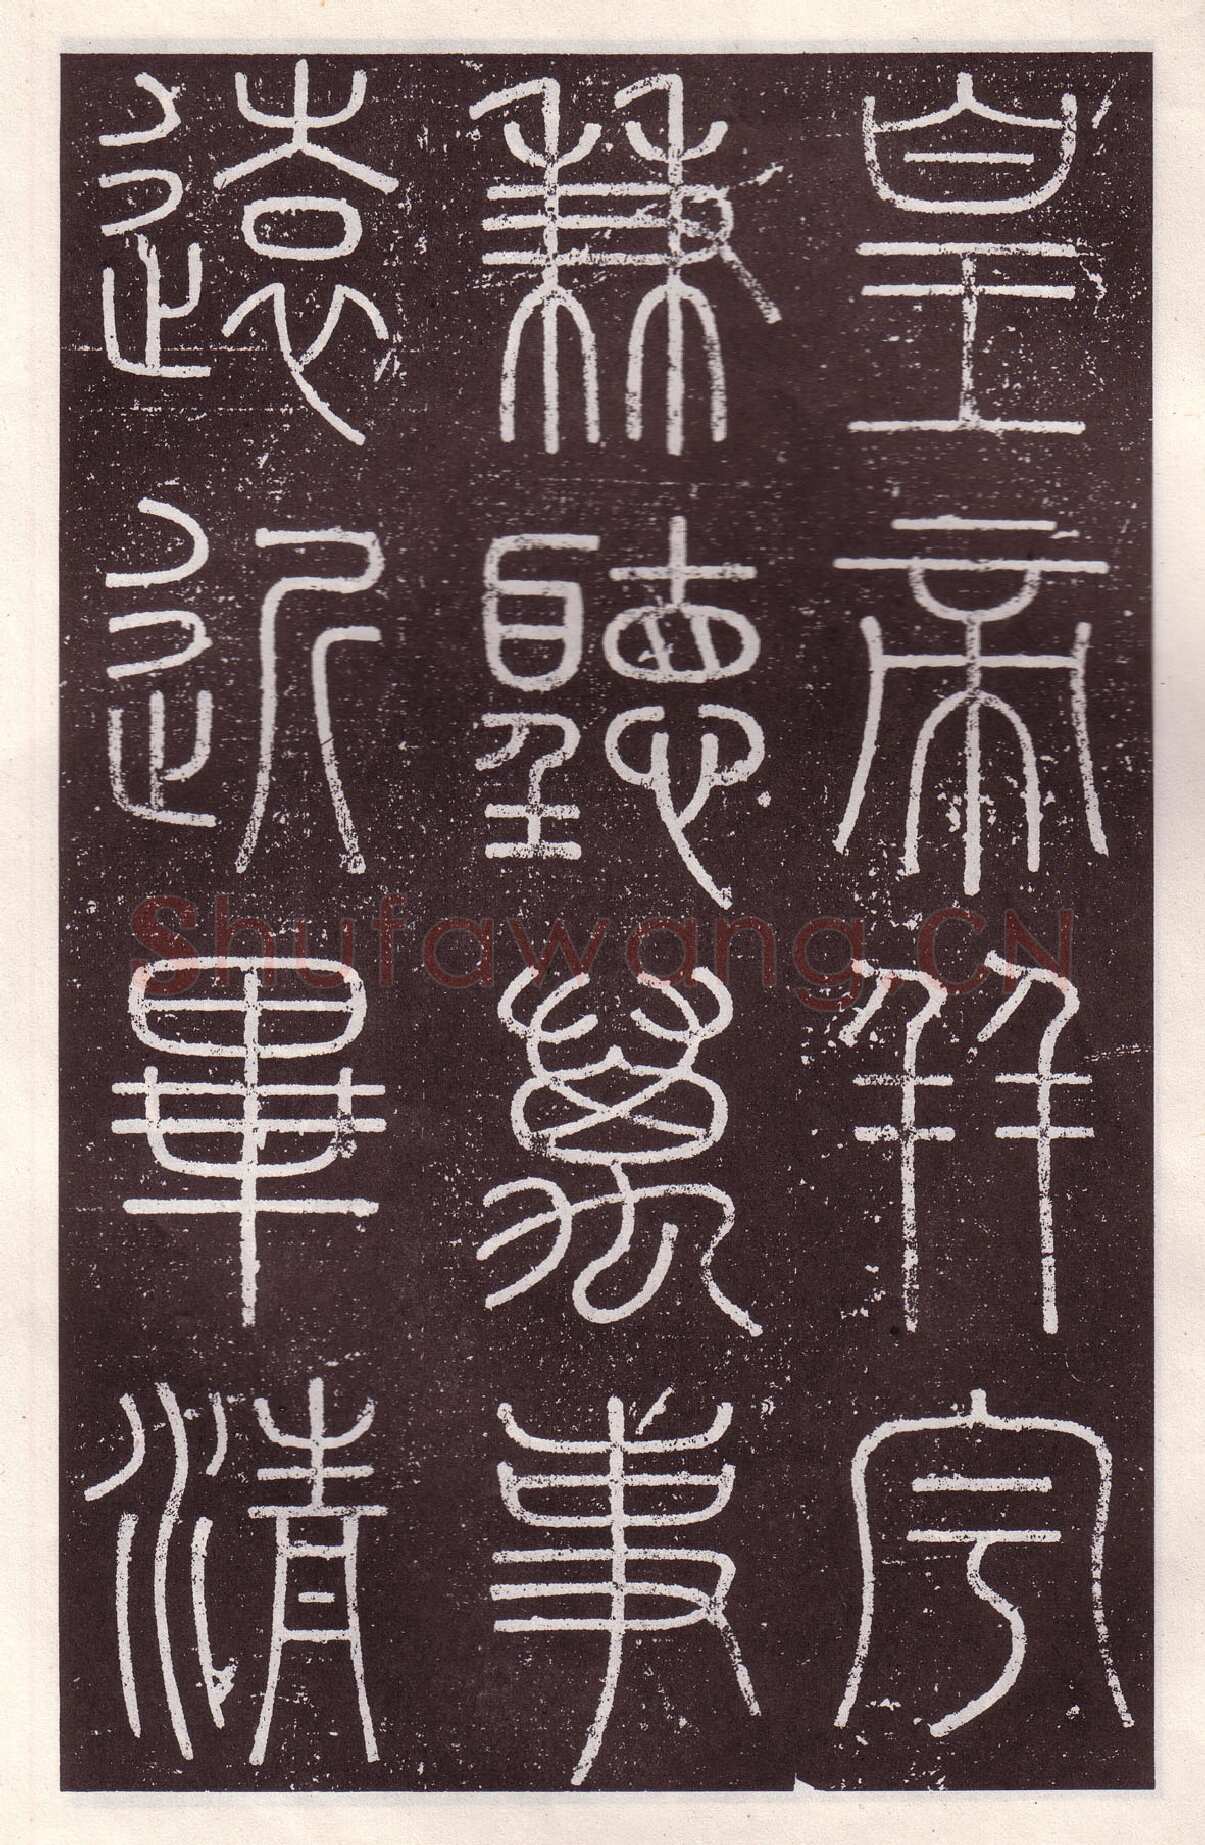 皇帝并宇
兼聽萬事
遠近畢清
Shufawang.CN